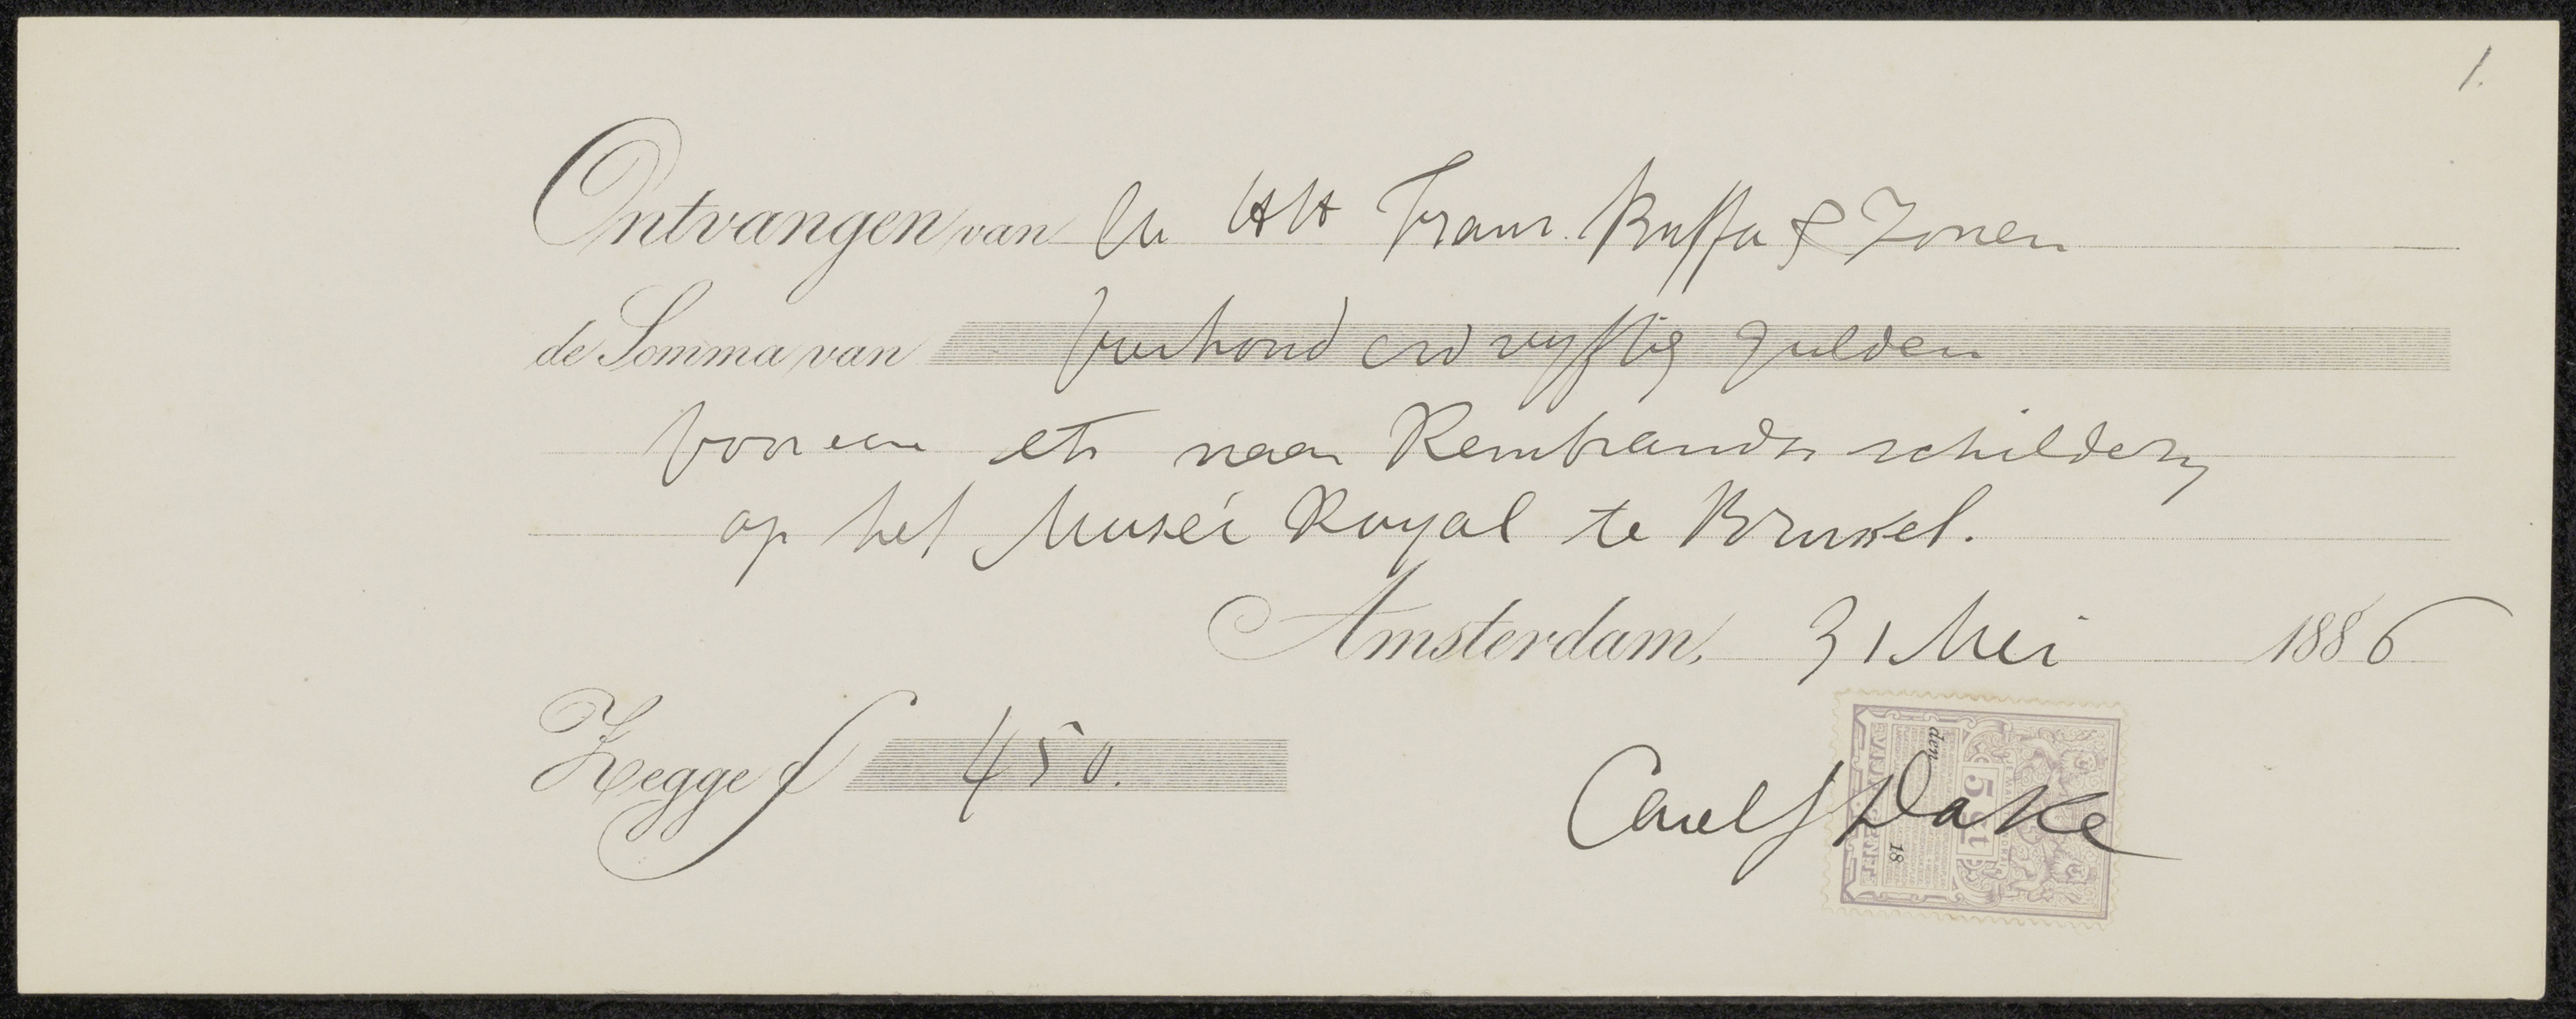 1.
Ontvangen van de HH Frans Buffa & Zonen
de Somma van vierhond en vyftig gulden
voor een ets naar Rembrandts schildery
op het Museé Royal te Brussel.
Amsterdam, 31 Mei 1886
Zegge f 450.
Carel J Dake
den
5 ct
18